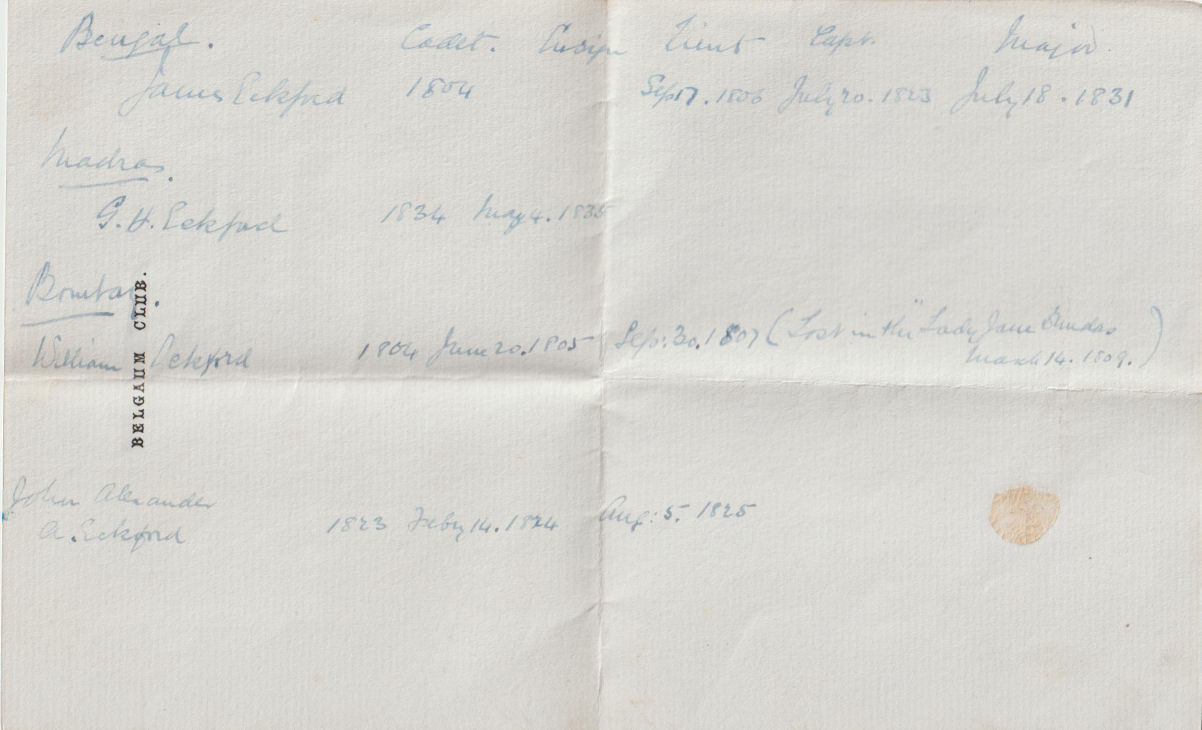 Bengal. Cadet. Ensign Lieut Capt. Major.
James Eckford 1804 Sep 17. 1806 July 20. 1823 July 18. 1831
Madras.
G. H. Eckford 1834 May 4. 1835
Bombay.
BELGAUM CLUB.
William Eckford 1804 June 20. 1805 Sep: 30. 1807 (Lost in the "Lady Jane Dundas
March 14. 1809.)
John Alexander
A. Eckford 1823 Feby 14. 1824 Aug: 5. 1825